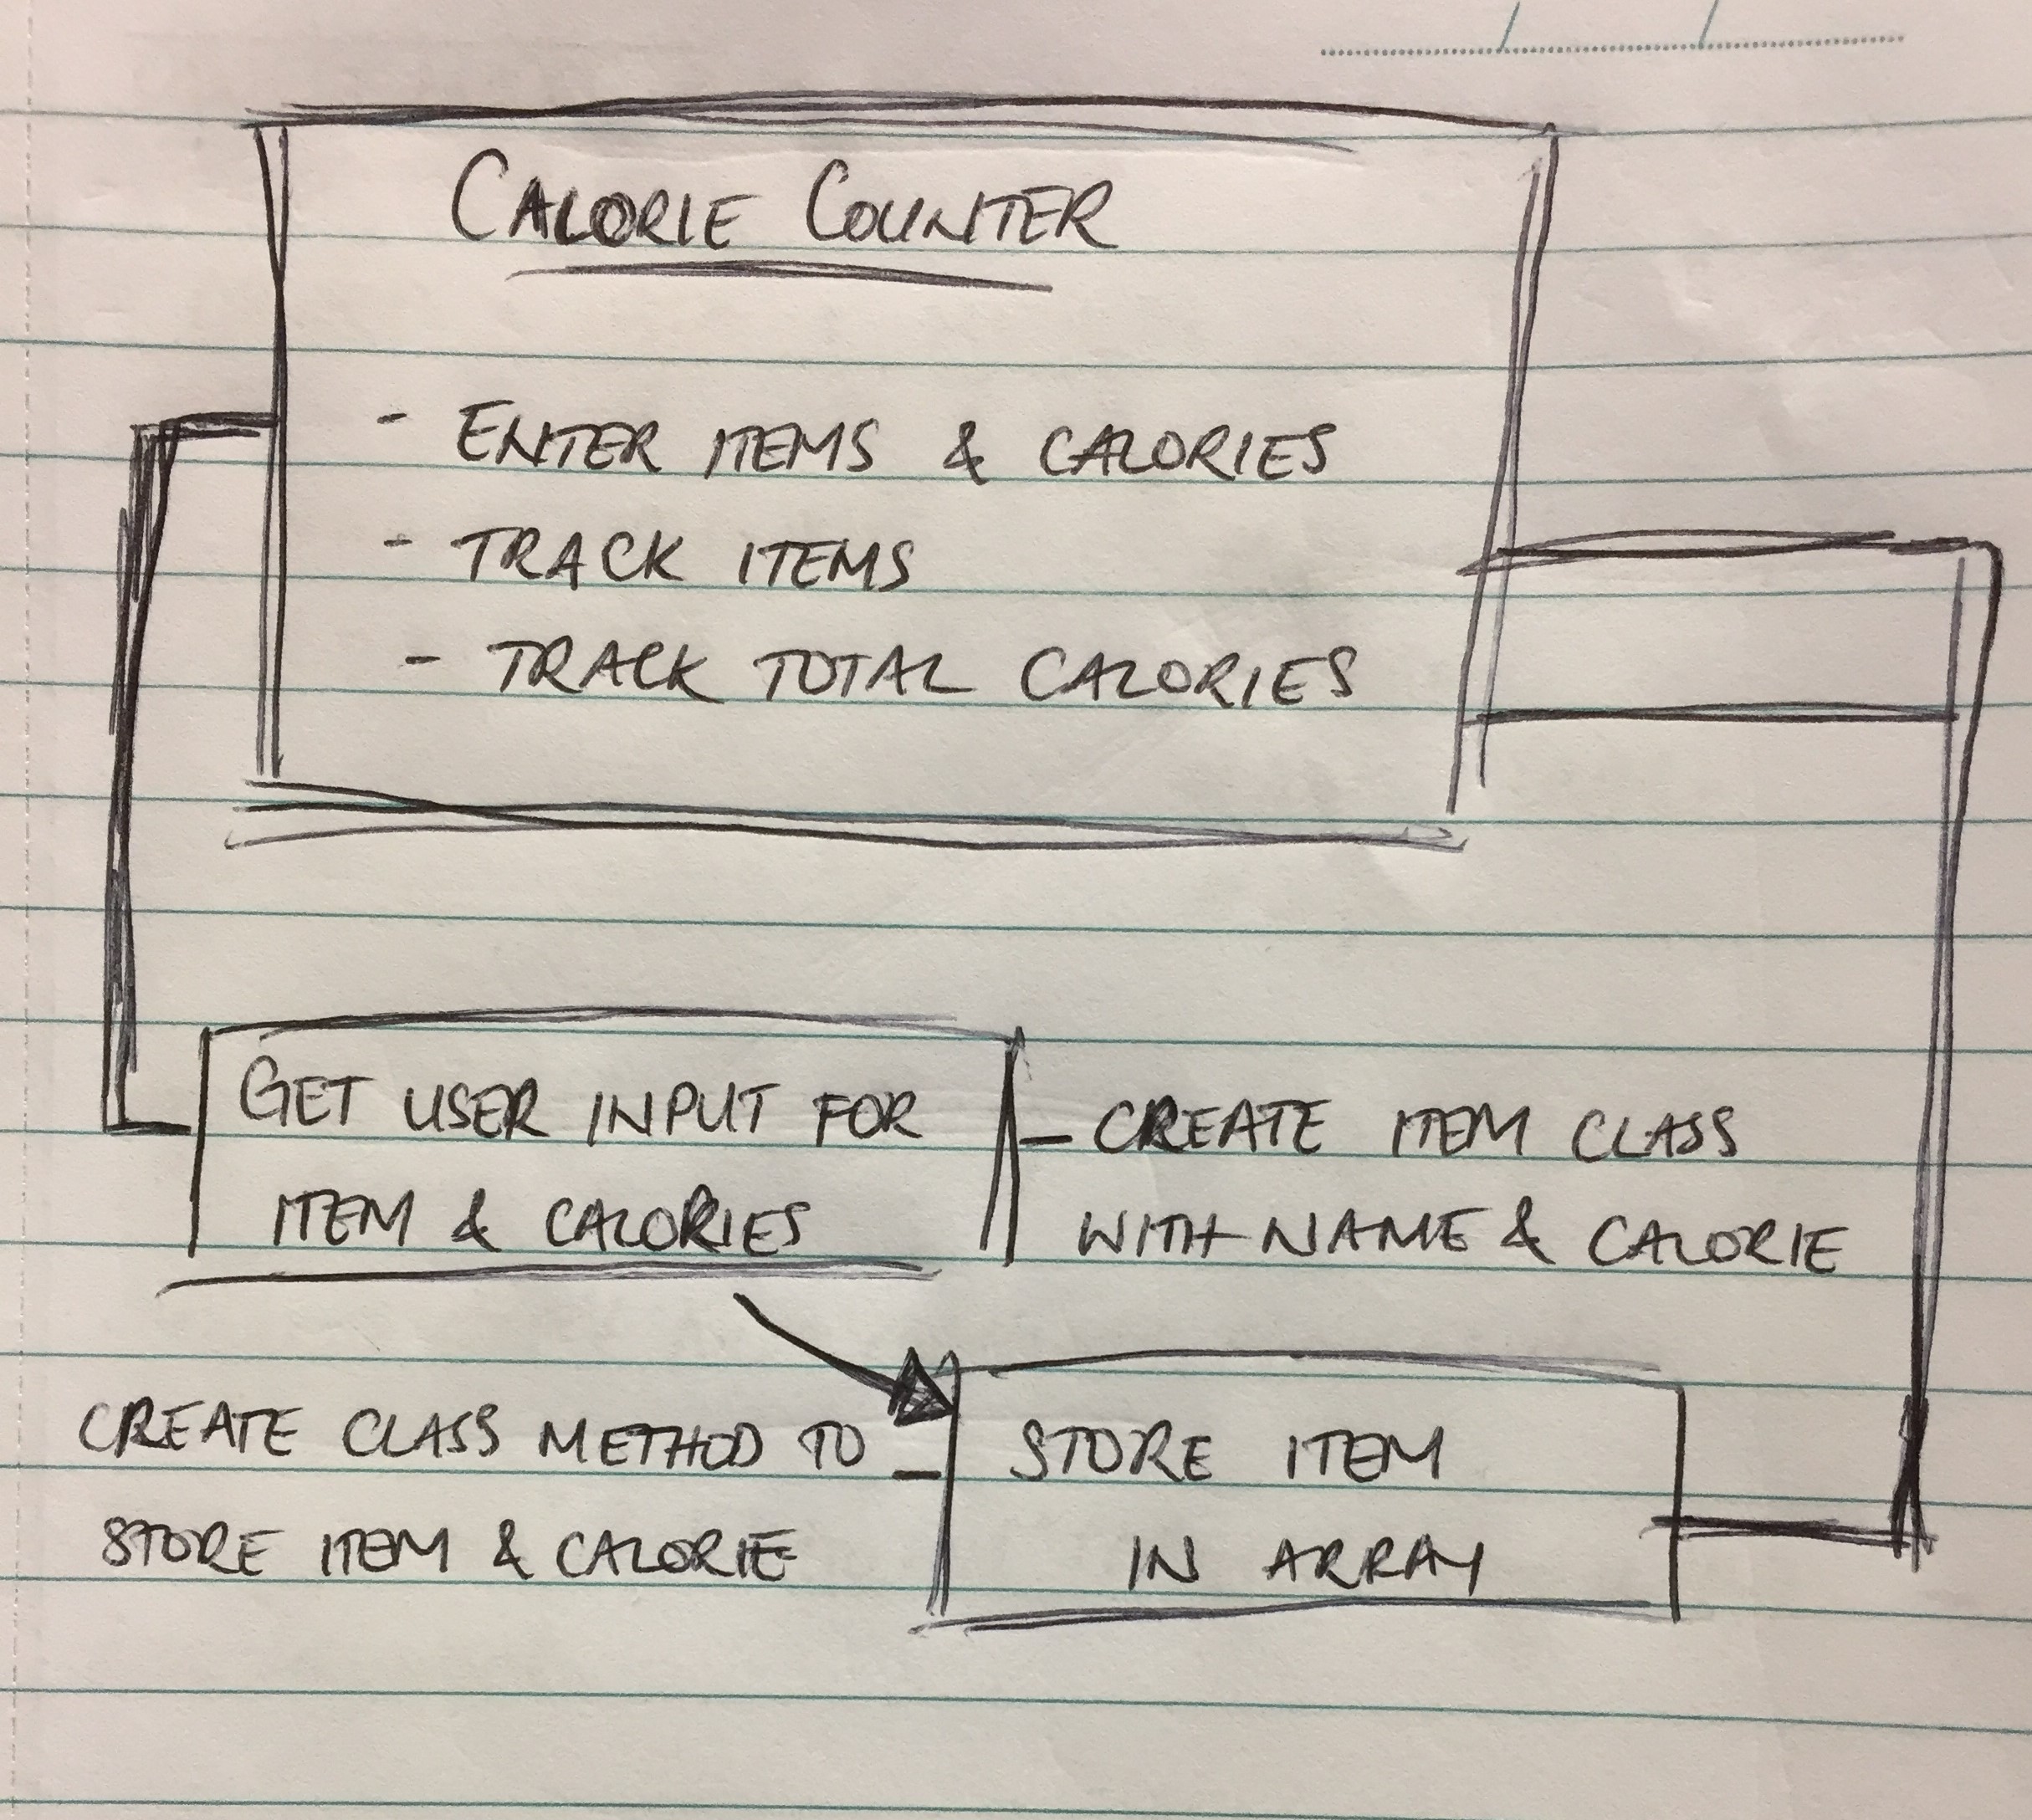 CALORIE COUNTER
- ENTER ITEMS & CALORIES
- TRACK ITEMS
- TRACK TOTAL CALORIES
GET USER INPUT FOR
ITEM & CALORIES
- CREATE ITEM CLASS
WITH NAME & CALORIE
CREATE CLASS METHOD TO -
STORE ITEM & CALORIE
STORE ITEM
IN ARRAY